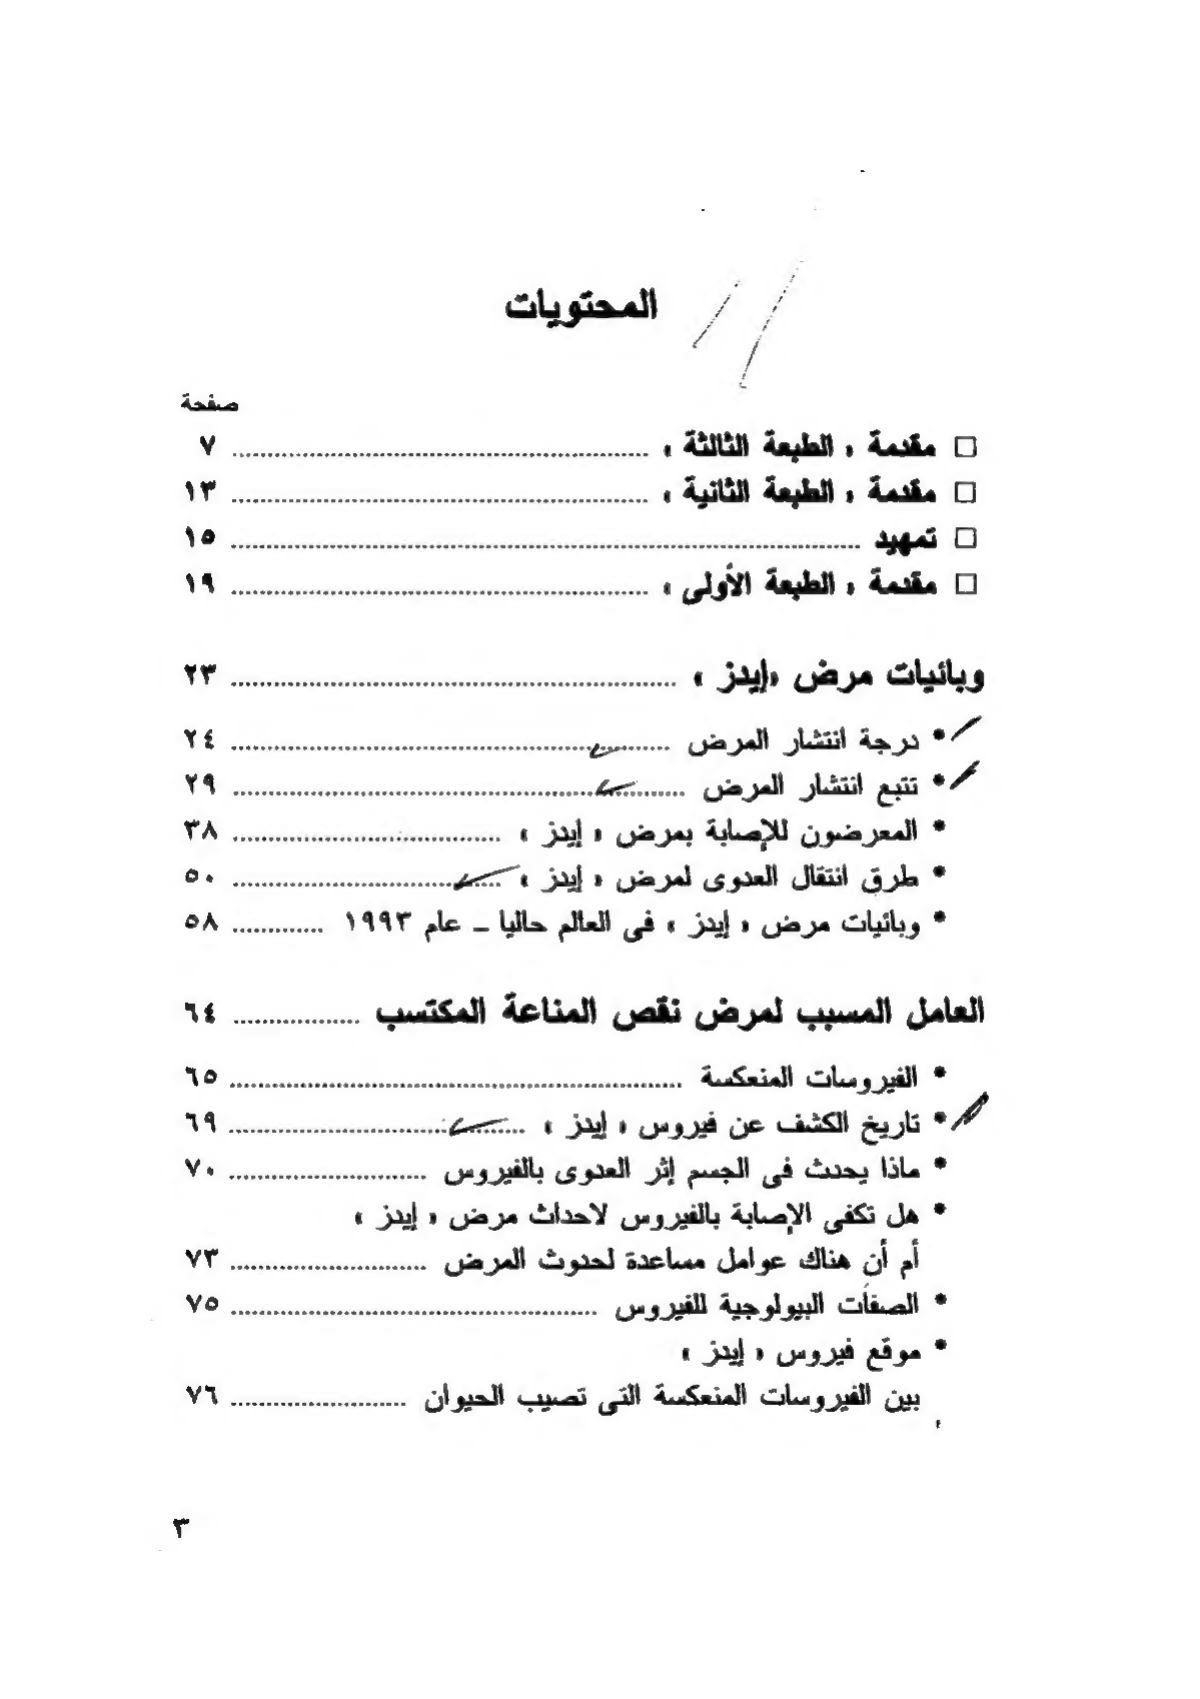 المحتويات
صفحة
□ مقدمة « الطبعة الثالثة » ........ ٧
□ مقدمة « الطبعة الثانية » ........ ١٣
□ تمهيد ........ ١٥
□ مقدمة « الطبعة الأولى » ........ ١٩
وبائيات مرض «إيدز » ........ ٢٣
* درجة انتشار المرض ........ ٢٤
* تتبع انتشار المرض ........ ٢٩
* المعرضون للإصابة بمرض « إيدز » ........ ٣٨
* طرق انتقال العدوى لمرض « إيدز » ........ ٥٠
* وبائيات مرض « إيدز » فى العالم حاليا ـ عام ١٩٩٣ ........ ٥٨
العامل المسبب لمرض نقص المناعة المكتسب ........ ٦٤
* الفيروسات المنعكسة ........ ٦٥
* تاريخ الكشف عن فيروس « إيدز » ........ ٦٩
* ماذا يحدث فى الجسم إثر العدوى بالفيروس ........ ٧٠
* هل تكفى الإصابة بالفيروس لاحداث مرض « إيدز »
أم أن هناك عوامل مساعدة لحدوث المرض ........ ٧٣
* الصفات البيولوجية للفيروس ........ ٧٥
* موقع فيروس « إيدز »
بين الفيروسات المنعكسة التى تصيب الحيوان ........ ٧٦
٣